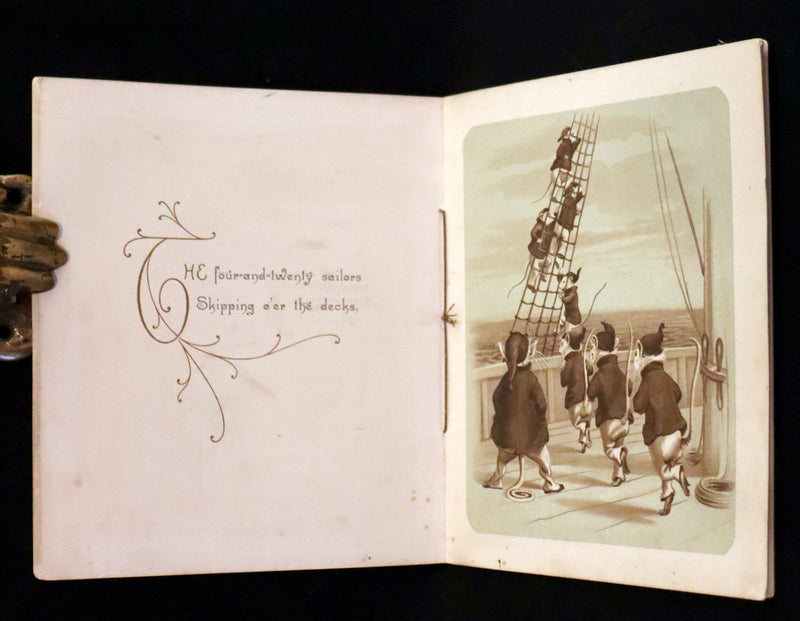 THE four-and-twenty sailors
Skipping o'er the decks,